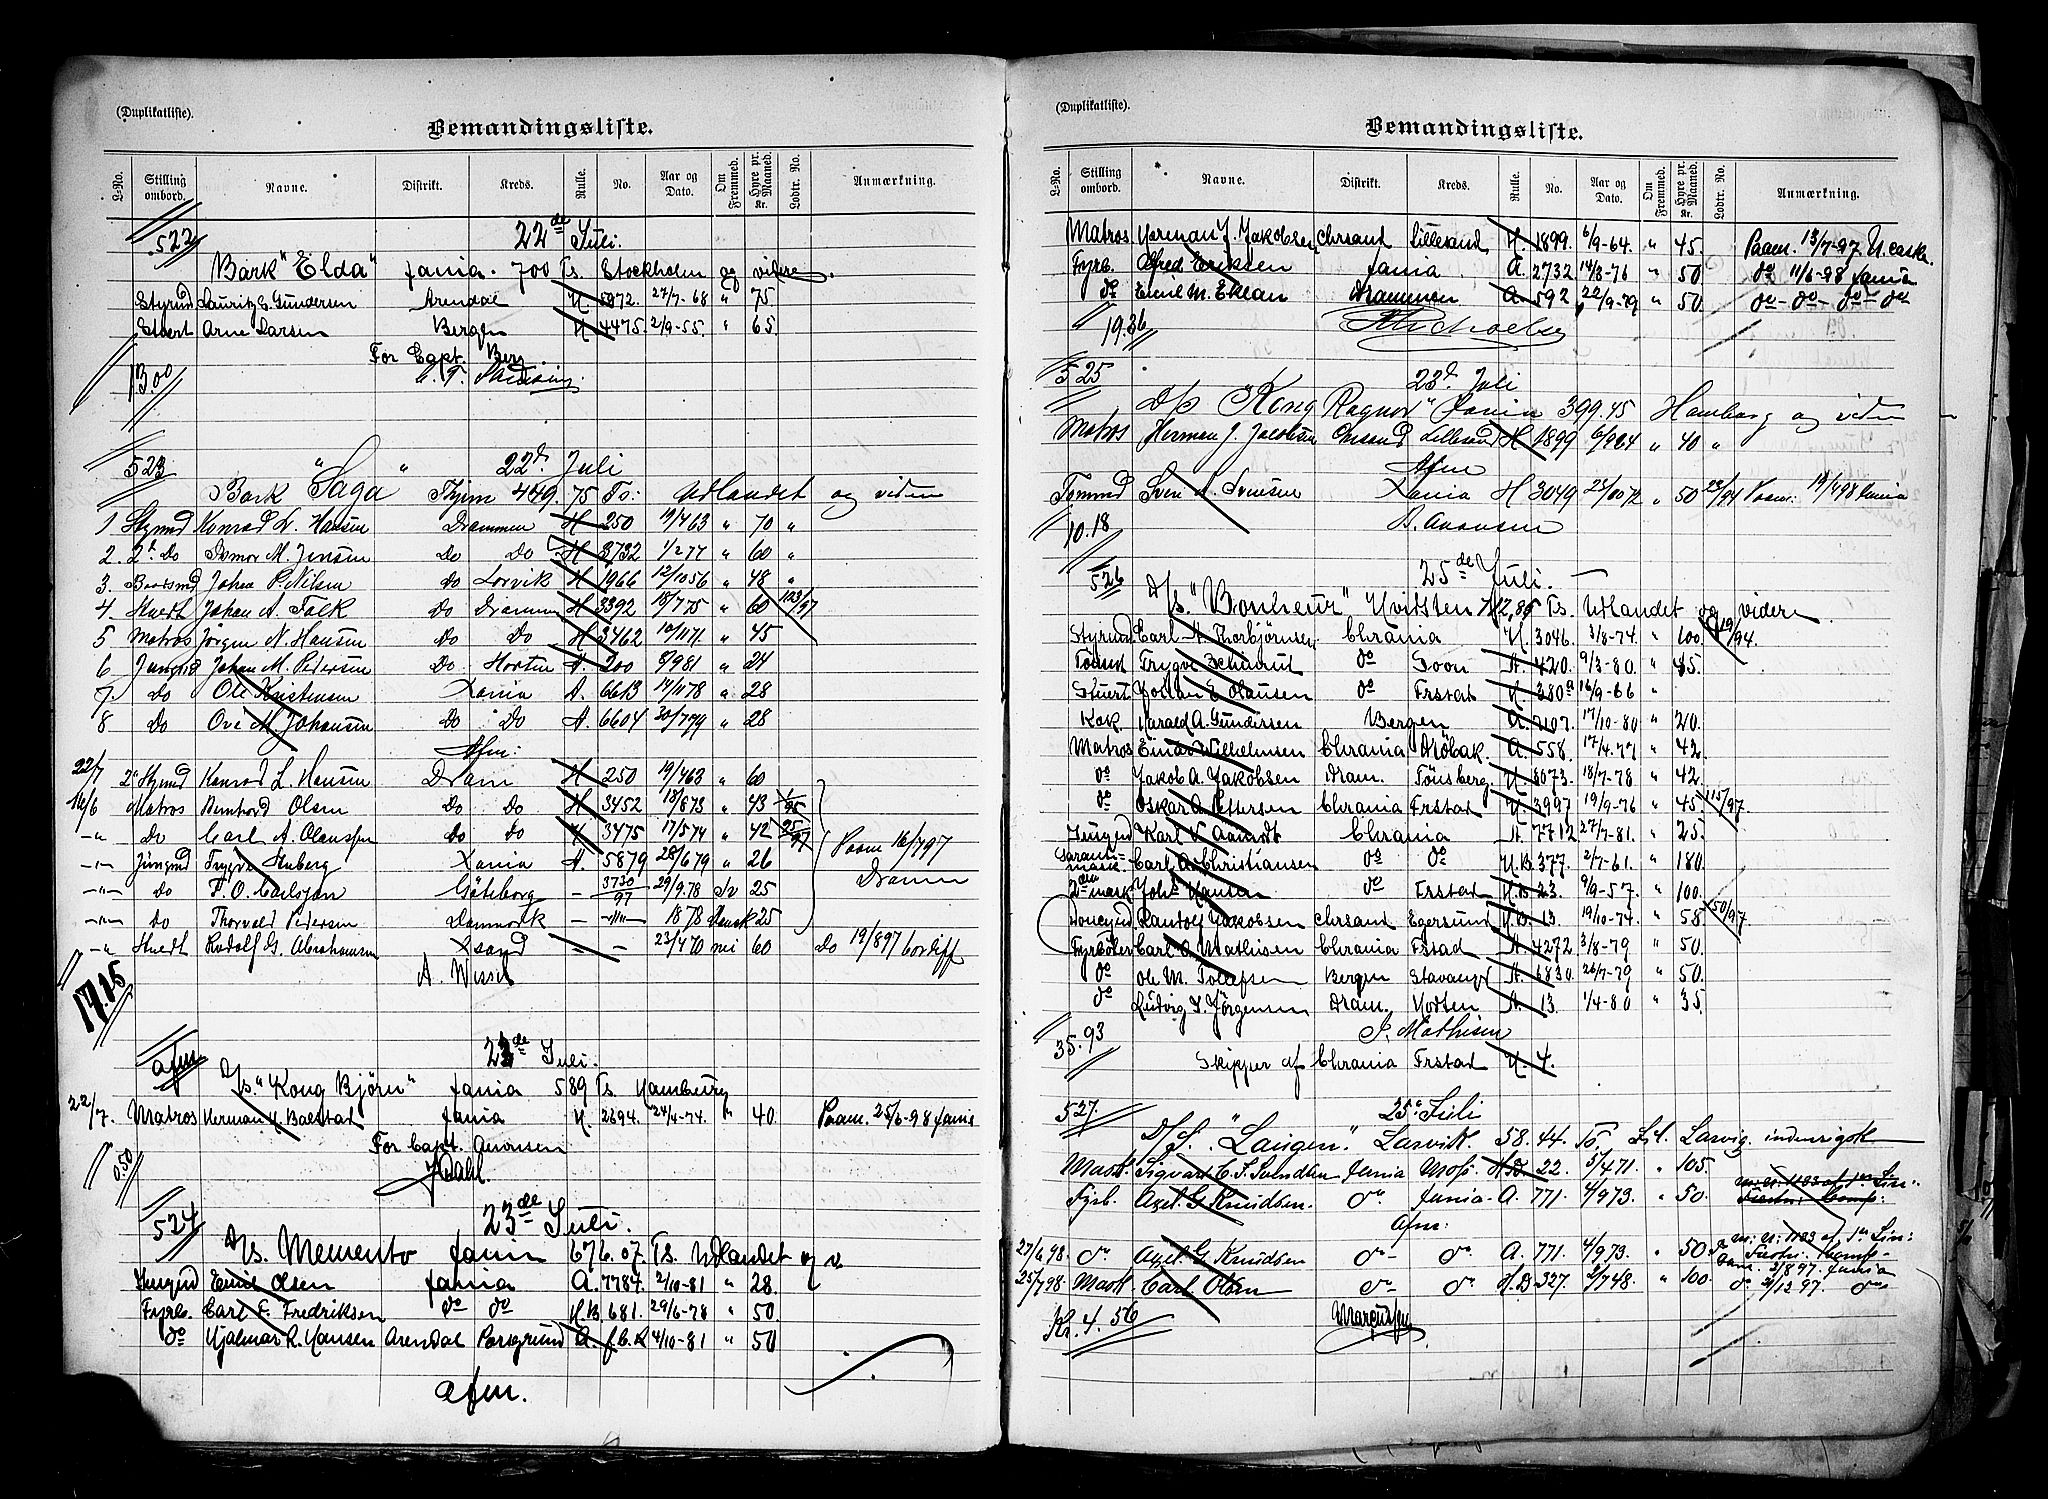 (Duplikatliste).
Bemandingsliste.
L-No. Stilling ombord. Navne. Distrikt. Kreds. Rulle. No. Aar og Dato. Om Fremmed. Hyre pr. Maaned. Kr. Lodtr. No. Anmærkning.
522 22de Juli.
Bark "Elda" fania. 700 Ts. Stockholm og videre.
Styrmd Lauritz G. Gundersen Arendal H. 5972. 27/7-68 " 75
Stuert Arne Larsen Bergen H. 4475. 2/9-55. " 65.
For Capt. Berg.
13.00
523 22d. Juli
Bark "Saga" Thjem 449.75 Ts: Udlandet og videre
1 Styrmd Konrad L. Hansen Drammen H 250 19/4 63 " 70 "
2. 2d Do M. Jensen Do Do H 3732 1/2 77 " 60 "
3. Baadsmd Johan P. Nilsen Do Lørvik H 1966 12/10 56 " 48 "
4 Stuert Johan A. Falk Do Dramm H 3392 18/7 75 " 60 123/97
5 Matros Jörgen N. Hansen Do Do H 3462 10/11 71. " 45
6 Jungmd Johan M. Pedersen Do Horten A. 200 8/9 81 " 24
7 Do Ole Kristensen Xania A. 6613 19/11 78 " 28
8 Do Ove M Johansen Do Do A. 6604 30/7 79 " 28
Afm:
22/7 2d Stymd Konrad L. Hansen Dram H 250 19/4 63 " 60
16/6 Matros Bernhard Olsen Do Do H 3452 18/8 73 " 43 1/98
-"- Do Carl A. Olaussen Do Do H 3475 17/5 74 " 42 95/97 Paam 16/7 97
-"- Jüngmd Trygve Anberg Xania A. 5879 28/6 79 " 26 Dramm
-"- Do F. O. Carlsson Göteborg - 3730/97 29/9.78 Sv 25
-"- Do Thorvald Pedersen Danmark - -"- 1878 Dansk 25
-"- Stuert Rudolf G. Abrahamsen Xsand - - 23/4 70 nei 60 Do 19/8 97 Cardiff
A. Wissel
17.15
afm. 23de Juli.
D/s. "Kong Bjørn" fania 589 Ts Hamburg
22/7. Matros Herman H. Baltstad fania H. 2694. 24/4-74. " 40 Paam. 25/6-98 fania
For Capt. Aronsen
Dahl.
0.50
524 23de Juli.
D/s. Memento fania 676.07 Ts. Udlandet og v.
Jungmd Emil Olsen fania A. 7784. 2/10-81 " 28.
Fyrb. Carl E. Fredriksen do do H.B. 681. 29/6-78 " 50.
do Hjalmar R. Hansen Arendal Porsgrund A. f.C.R 4/10-81 " 50
afm.
(Duplikatliste).
Bemandingsliste.
L-No. Stilling ombord. Navne. Distrikt. Kreds. Rulle. No. Aar og Dato. Om Fremmed. Hyre pr. Maaned. Kr. Lodtr. No. Anmærkning.
Matros Herman J. Jakobsen Chrsand Lillesand H. 1899. 6/9-64. " 45. Paam. 13/7-97 N.castle.
Fyrb. Alfred Eriksen fania A. 2732 14/8-76 " 50 do 11/6-98 fania
do Emil M. Eklan Drammen A. 592 22/9-79 " 50. do - do - do - do
19.36
525 23d. Juli
D/s "Kong Ragnar" Xania 399.45 Hamburg og videre
Matros Herman J. Jacobsen Chrsand Lillesand H 1899 6/9 64 " 40 "
Afm
Tømmd Sven A. Svensen Xania H 3049 " 50 Paam: fania
10.18 B. Aronsen
526 25de Juli.
D/s. "Bonheur" Hvidsten 712,85 Ts Udlandet og videre
Styrmd Carl A. Thorbjörnsen Chrania H. 3046. 3/8-74. " 100. 19/94.
Tömmd Trygve do Soon A. 420. 9/3-80. " 45.
Stuert Johan E. Hansen do Frstad H. 380a 16/9-66 "
Kok Harald A. Gundersen Bergen A. 2107. 17/10-80 " 20.
Matros Einar Wilhelmsen Chrania Dröbak. A. 558. 17/4.77 " 42
do Jakob A. Jakobsen Dram. Tönsberg H. 8073. 18/7-78 " 42.
do Oskar A. Pettersen Chrania Frstad H. 3997 19/9-76 " 45 115/97.
Jungmd Karl V. Aamodt Chrania A. 7712 27/7-81. " 25.
1ste mask. Carl A. Christiansen do do H.B. 377. 2/7-61. " 180.
2den mask Johs Hansen do Frstad H.B. 23. 9/9-57. " 100.
Donkymd Randolf Jakobsen Chrsand Egersund H.B. 13. 19/10-74. " 58 50/97
Fyrböter Carl O. Mathisen Chrania Fstad A. 4272 3/8-79 " 50.
do Ole M. Tollefsen Bergen Stavanger A. 6830. 26/7-79 " 50.
do Ludvig I. Jörgensen Dram. A. 13. 1/4-80 " 35.
35.93 J. Mathisen
Skipper af Chrania Frstad H. 4.
527. 25de Juli
D/S. "Laugen". Larvik. 58.44. To Til Larvig indenrigsk
Mask. Sigvart C. F. Svendsen fania Moss H.B. 22. 5/4 71. " 105.
Fyrb. Axel G. Knudsen. do fania A. 771. 4/9 73. " 50. m. n. 1183 af 1ste Lin: Comp:
Afm:
27/6 98. do Axel G. Knudsen do do A. 771. 4/9 73. " 50 m: n: 1183 af 1ste Lin: Comp - Paam. 2/8 97. fania
25/7 98 Mask Carl Olsen do do H.B. 327. 2/7 48. " 100. do 2/12 97. do
Kr. 4.56 Marcussen.